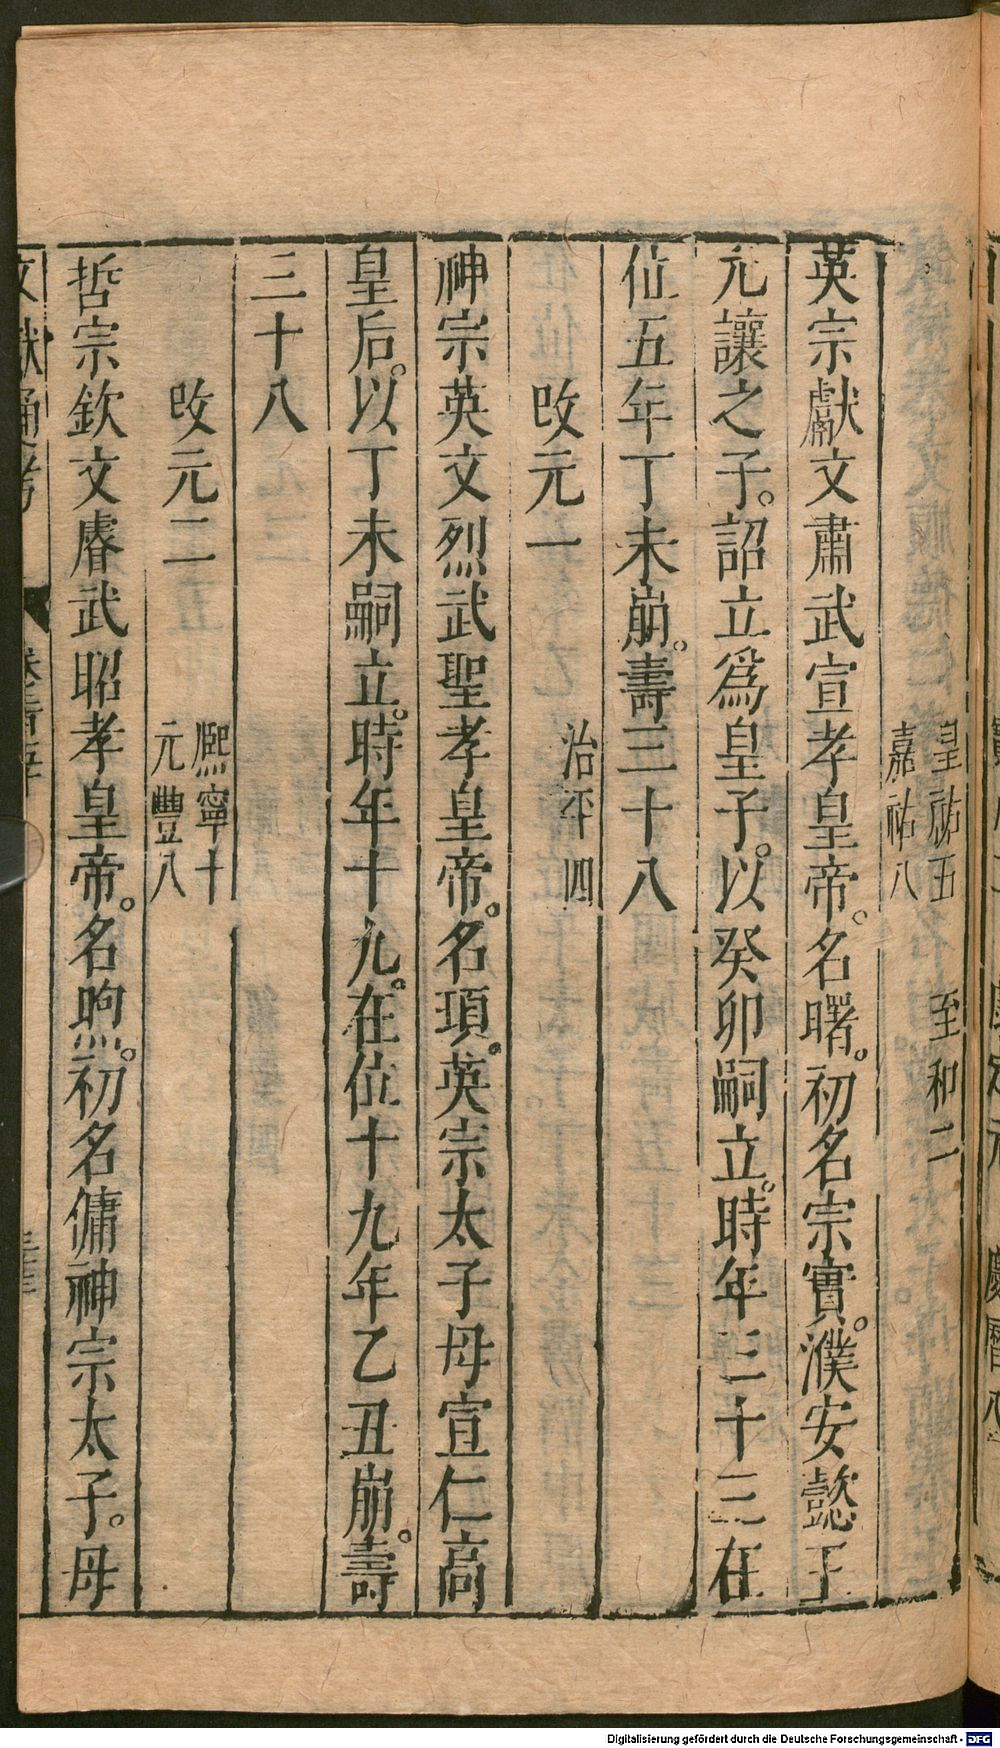 皇祐五　至和二
嘉祐八
英宗獻文肅武宣孝皇帝。名曙。初名宗實。濮安懿王
元讓之子。詔立爲皇子。以癸卯嗣立。時年三十三在
位五年丁未崩。壽三十八
改元一
治平四
神宗英文烈武聖孝皇帝。名頊。英宗太子母宣仁高
皇后。以丁未嗣立。時年十九。在位十九年乙丑崩。壽
三十八
改元二
熈寧十
元豐八
哲宗欽文睿武昭孝皇帝。名煦。初名傭神宗太子。母
文獻通考
Digitalisierung gefördert durch die Deutsche Forschungsgemeinschaft - DFG